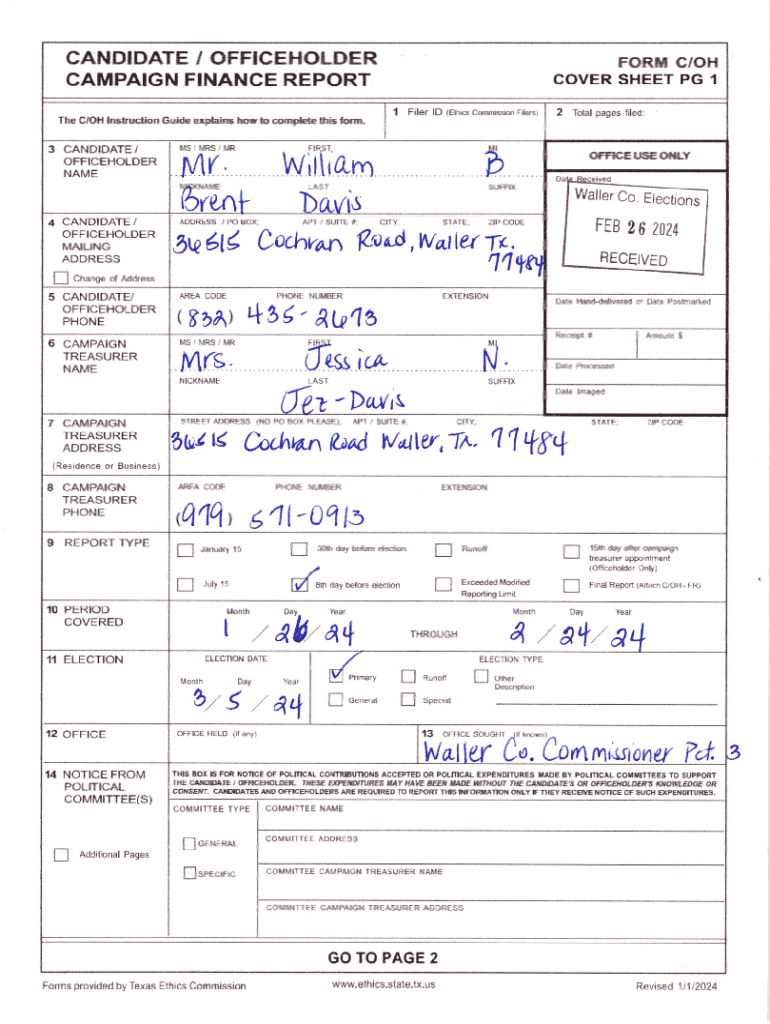 CANDIDATE / OFFICEHOLDER
CAMPAIGN FINANCE REPORT
FORM C/OH
COVER SHEET PG 1
The C/OH Instruction Guide explains how to complete this form.
1 Filer ID (Ethics Commission Filers)
2 Total pages filed:
3 CANDIDATE / OFFICEHOLDER NAME
MS / MRS / MR FIRST MI
Mr. William B
NICKNAME LAST SUFFIX
Brent Davis
OFFICE USE ONLY
Date Received
Waller Co. Elections
FEB 26 2024
RECEIVED
4 CANDIDATE / OFFICEHOLDER MAILING ADDRESS
Change of Address
ADDRESS / PO BOX; APT / SUITE #; CITY; STATE; ZIP CODE
36515 Cochran Road, Waller Tx.
77484
5 CANDIDATE/ OFFICEHOLDER PHONE
AREA CODE PHONE NUMBER EXTENSION
(832) 435-2673
Date Hand-delivered or Date Postmarked
Receipt # Amount $
Date Processed
Date Imaged
6 CAMPAIGN TREASURER NAME
MS / MRS / MR FIRST MI
Mrs. Jessica N.
NICKNAME LAST SUFFIX
Jez-Davis
7 CAMPAIGN TREASURER ADDRESS
(Residence or Business)
STREET ADDRESS (NO PO BOX PLEASE); APT / SUITE #; CITY; STATE; ZIP CODE
36515 Cochran Road Waller, Tx. 77484
8 CAMPAIGN TREASURER PHONE
AREA CODE PHONE NUMBER EXTENSION
(979) 571-0913
9 REPORT TYPE
January 15 30th day before election Runoff 15th day after campaign treasurer appointment (Officeholder Only)
July 15 8th day before election Exceeded Modified Reporting Limit Final Report (Attach C/OH - FR)
10 PERIOD COVERED
Month Day Year Month Day Year
1 / 26 / 24 THROUGH 2 / 24 / 24
11 ELECTION
ELECTION DATE
Month Day Year
3 / 5 / 24
ELECTION TYPE
Primary Runoff Other Description
General Special
12 OFFICE
OFFICE HELD (if any)
13 OFFICE SOUGHT (if known)
Waller Co. Commissioner Pct. 3
14 NOTICE FROM POLITICAL COMMITTEE(S)
Additional Pages
THIS BOX IS FOR NOTICE OF POLITICAL CONTRIBUTIONS ACCEPTED OR POLITICAL EXPENDITURES MADE BY POLITICAL COMMITTEES TO SUPPORT
THE CANDIDATE / OFFICEHOLDER. THESE EXPENDITURES MAY HAVE BEEN MADE WITHOUT THE CANDIDATE'S OR OFFICEHOLDER'S KNOWLEDGE OR
CONSENT. CANDIDATES AND OFFICEHOLDERS ARE REQUIRED TO REPORT THIS INFORMATION ONLY IF THEY RECEIVE NOTICE OF SUCH EXPENDITURES.
COMMITTEE TYPE
GENERAL
SPECIFIC
COMMITTEE NAME
COMMITTEE ADDRESS
COMMITTEE CAMPAIGN TREASURER NAME
COMMITTEE CAMPAIGN TREASURER ADDRESS
GO TO PAGE 2
Forms provided by Texas Ethics Commission www.ethics.state.tx.us Revised 1/1/2024